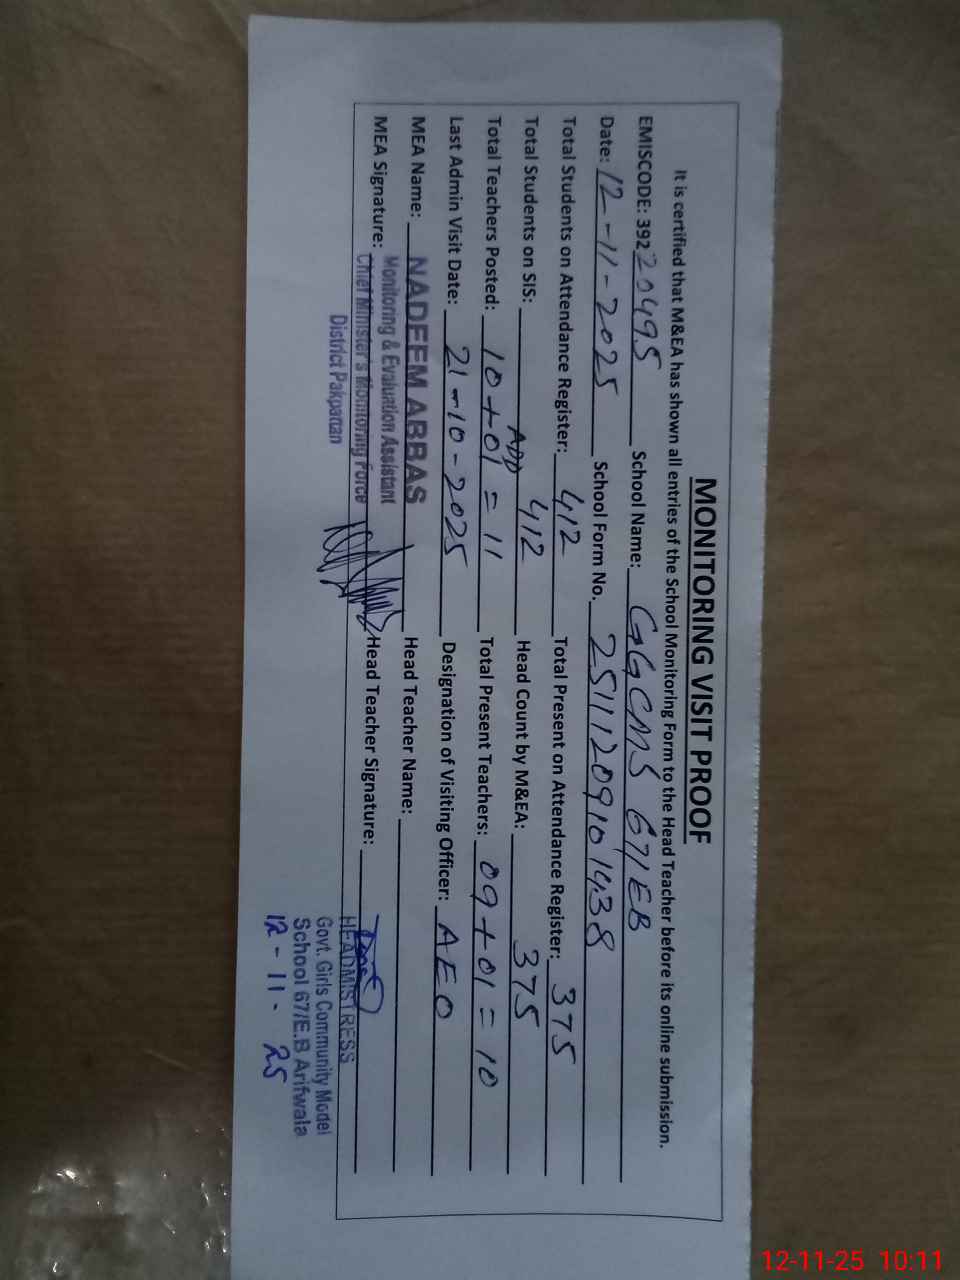 MONITORING VISIT PROOF
It is certified that M&EA has shown all entries of the School Monitoring Form to the Head Teacher before its online submission.
EMISCODE: 39220495 School Name: GGCMS 67/EB
Date: 12-11-2025 School Form No. 25111209101438
Total Students on Attendance Register: 412 Total Present on Attendance Register: 375
Total Students on SIS: 412 Head Count by M&EA: 375
ADD
Total Teachers Posted: 10+01=11 Total Present Teachers: 09+01=10
Last Admin Visit Date: 21-10-2025 Designation of Visiting Officer: AEO
MEA Name: NADEEM ABBAS Head Teacher Name:
Monitoring & Evaluation Assistant
MEA Signature: Chief Minister's Monitoring Force Head Teacher Signature:
District Pakpattan
HEADMISTRESS
Govt. Girls Community Model
School 67/E.B Arifwala
12-11-25
12-11-25 10:11